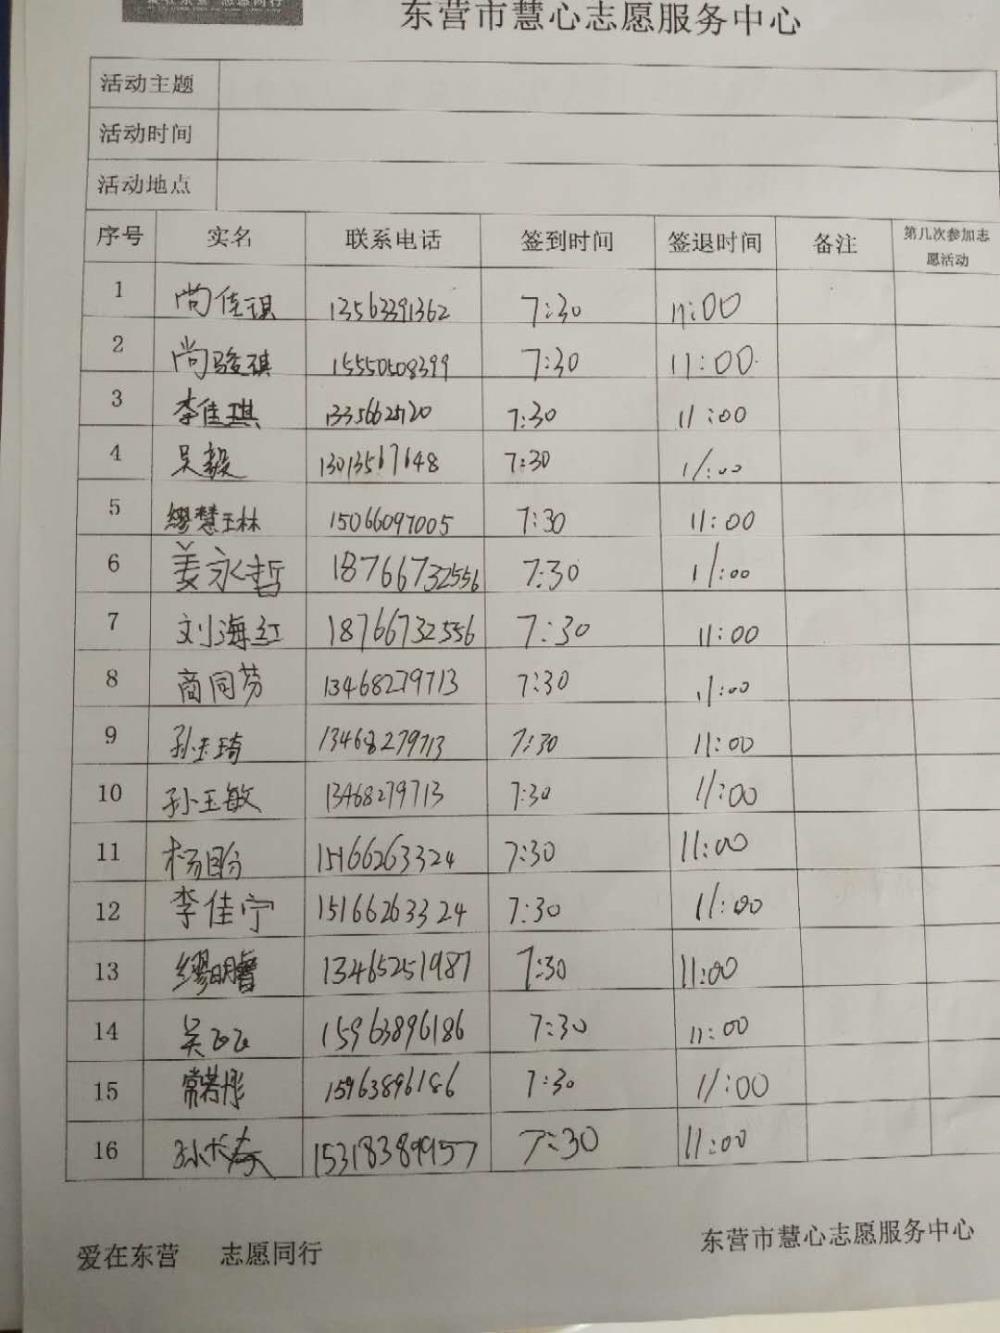 爱在东营 志愿同行
东营市慧心志愿服务中心
活动主题
活动时间
活动地点
序号 实名 联系电话 签到时间 签退时间 备注 第几次参加志愿活动
1 尚佳琪 13563391362 7:30 11:00
2 尚骏琪 15550508399 7:30 11:00
3 李佳琪 7:30 11:00
4 吴毅 13013567648 7:30 11:00
5 缪慧琳 15066097005 7:30 11:00
6 姜永哲 18766732556 7:30 11:00
7 刘海红 18766732556 7:30 11:00
8 商同芬 13468279713 7:30 11:00
9 孙玉琦 13468279713 7:30 11:00
10 孙玉敏 13468279713 7:30 11:00
11 杨盼 15166263324 7:30 11:00
12 李佳宁 15166263324 7:30 11:00
13 缪明睿 13465251987 7:30 11:00
14 吴飞飞 15963896186 7:30 11:00
15 常若彤 15963896186 7:30 11:00
16 孙长春 15318389957 7:30 11:00
爱在东营 志愿同行 东营市慧心志愿服务中心